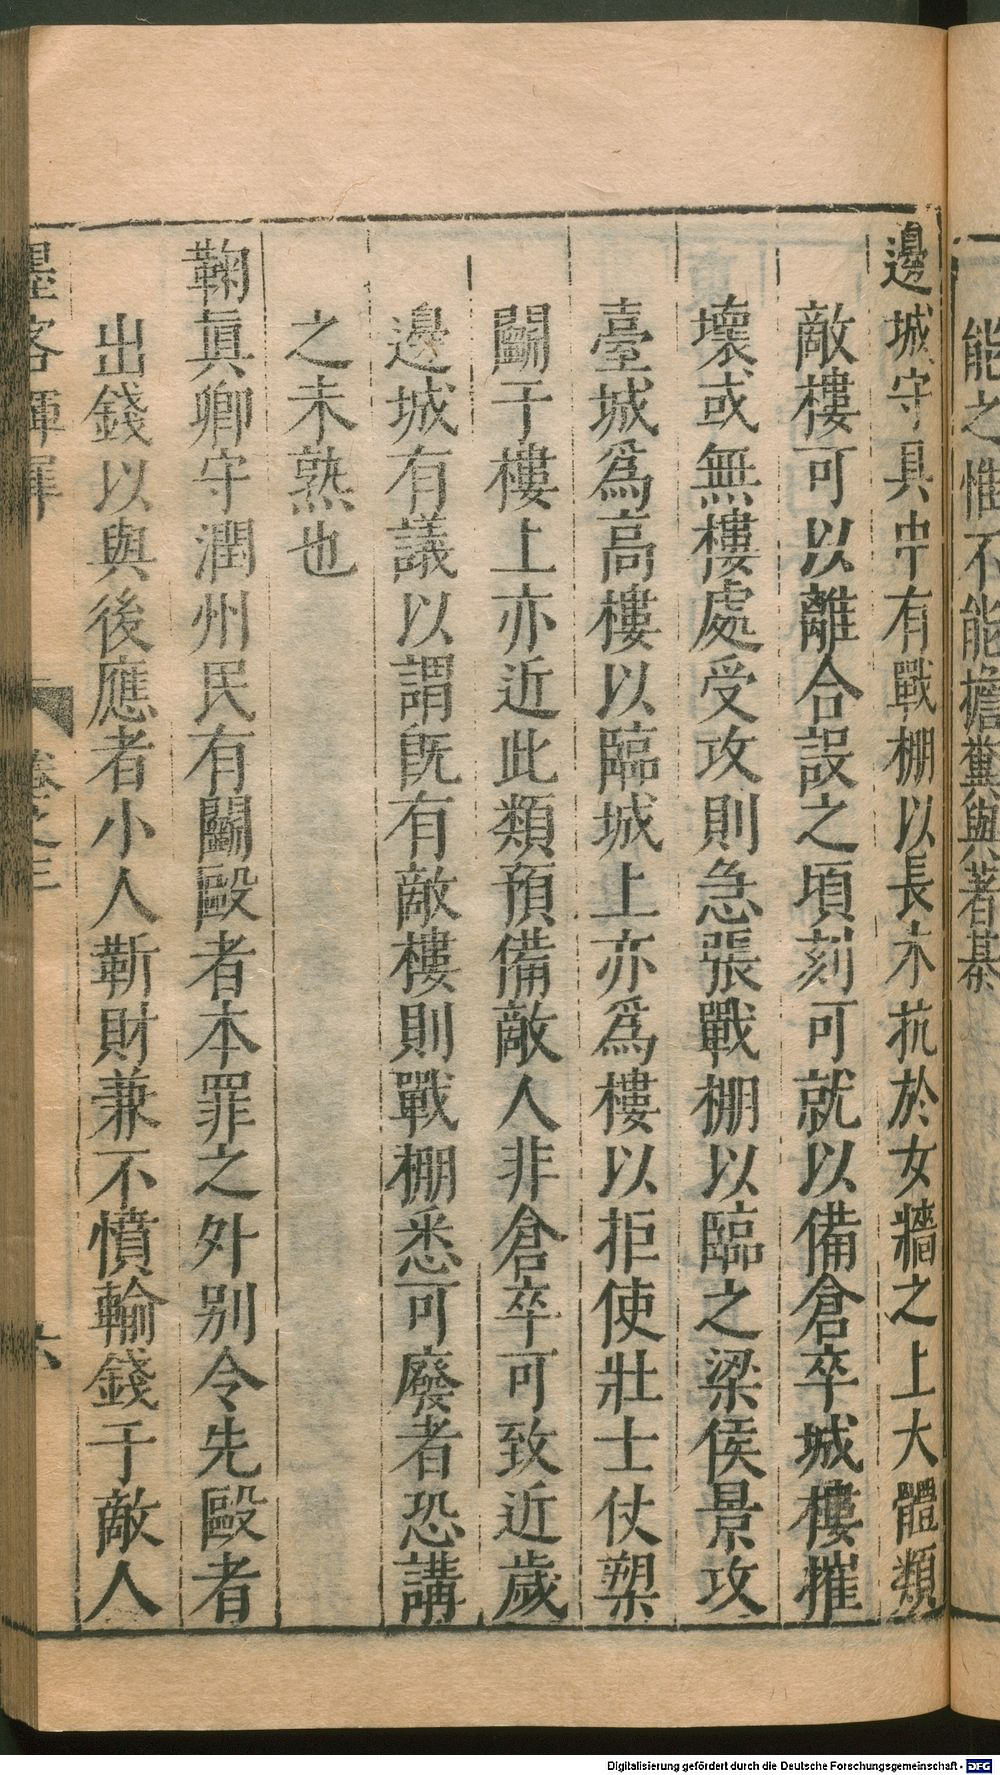 能之惟不能擔糞與著棊
邊城守具中有戰棚以長木抗於女牆之上大體類
敵樓可以離合設之頃刻可就以備倉卒城樓摧
壞或無樓處受攻則急張戰棚以臨之梁侯景攻
臺城爲高樓以臨城上亦爲樓以拒使壯士仗槊
鬭于樓上亦近此類預備敵人非倉卒可致近歲
邊城有議以謂旣有敵樓則戰棚悉可廢者恐講
之未熟也
鞠眞卿守潤州民有鬭毆者本罪之外别令先毆者
出錢以與後應者小人靳財兼不憤輸錢于敵人
墨客揮犀 卷之三 六
Digitalisierung gefördert durch die Deutsche Forschungsgemeinschaft - DFG